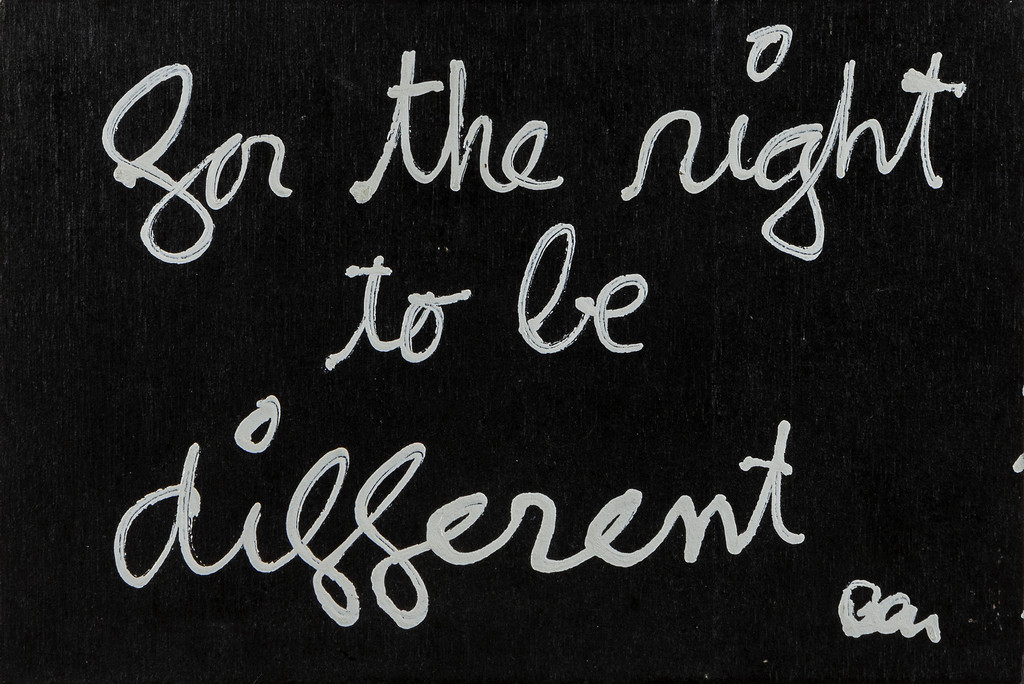 for the right
to be
different
Ben